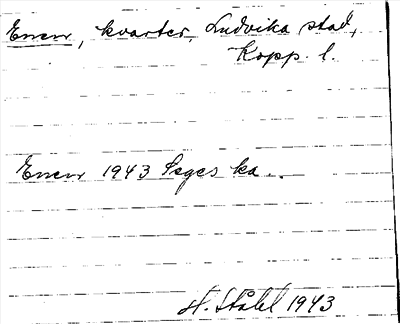 Enen, kvarter, Ludvika stad,
Kopp. l.
Enen 1943 Seges ka..
H. Ståhl 1943